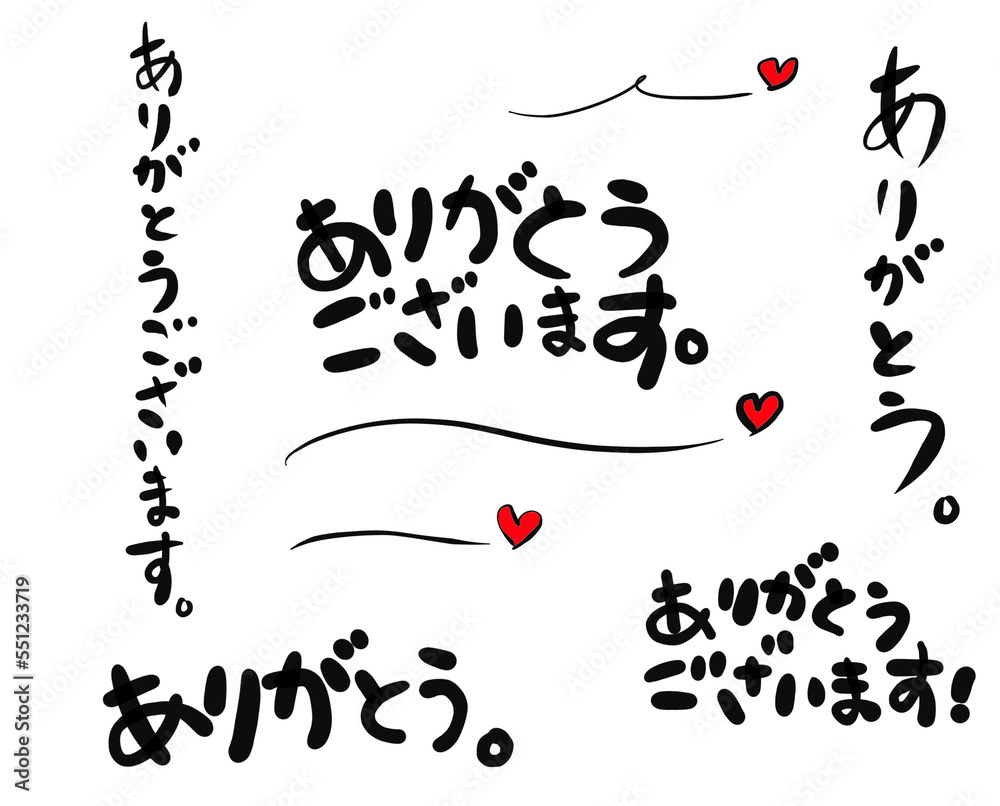 ありがとうございます。
ありがとう
ございます。
ありがとう。
ありがとう。
ありがとう
ございます!
Adobe Stock | #551233719